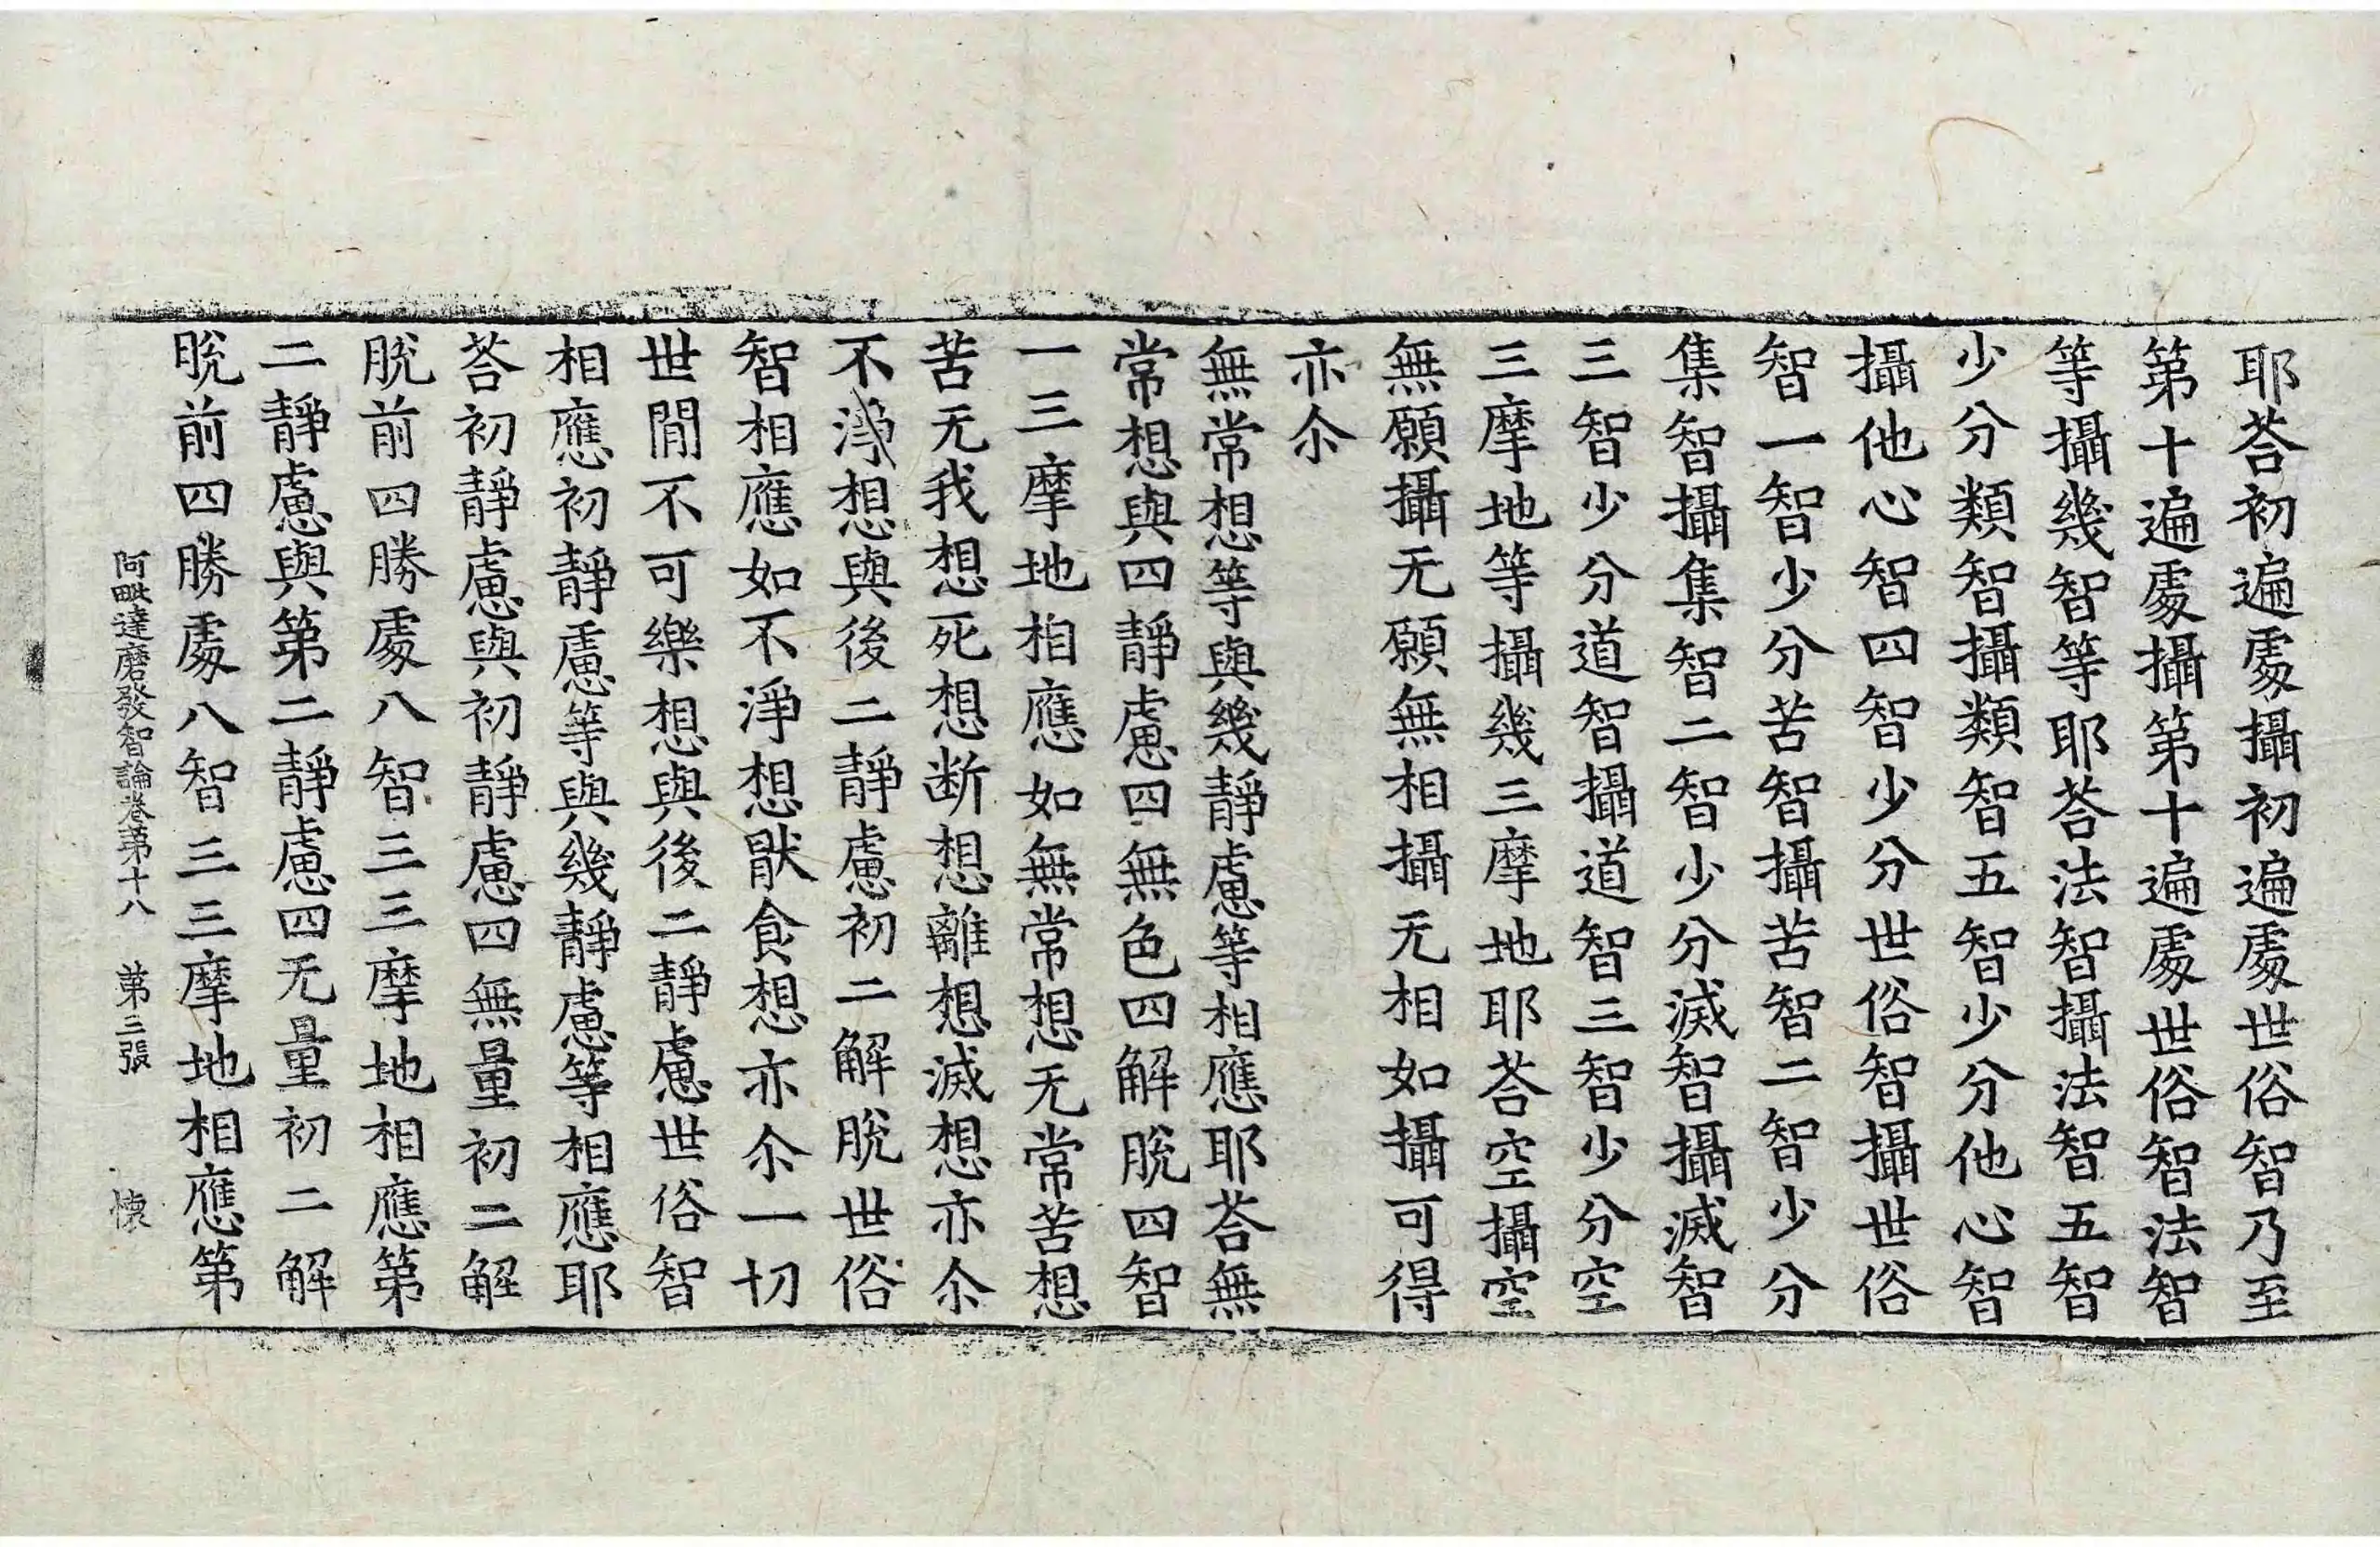 耶荅初遍處攝初遍處世俗智乃至
第十遍處攝第十遍處世俗智法智
等攝幾智等耶荅法智攝法智五智
少分類智攝類智五智少分他心智
攝他心智四智少分世俗智攝世俗
智一智少分苦智攝苦智二智少分
集智攝集智二智少分滅智攝滅智
三智少分道智攝道智三智少分空
三摩地等攝幾三摩地耶荅空攝空
無願攝无願無相攝无相如攝可得
亦尒
無常想等與幾靜慮等相應耶荅無
常想與四靜慮四無色四解脫四智
一三摩地相應如無常想无常苦想
苦无我想死想断想離想滅想亦尒
不淨想與後二靜慮初二解脫世俗
智相應如不淨想猒食想亦尒一切
世閒不可樂想與後二靜慮世俗智
相應初靜慮等與幾靜慮等相應耶
荅初靜慮與初靜慮四無量初二解
脫前四勝處八智三三摩地相應第
二靜慮與第二靜慮四无量初二解
脫前四勝處八智三三摩地相應第
阿毗達磨發智論卷第十八 第三張 懷